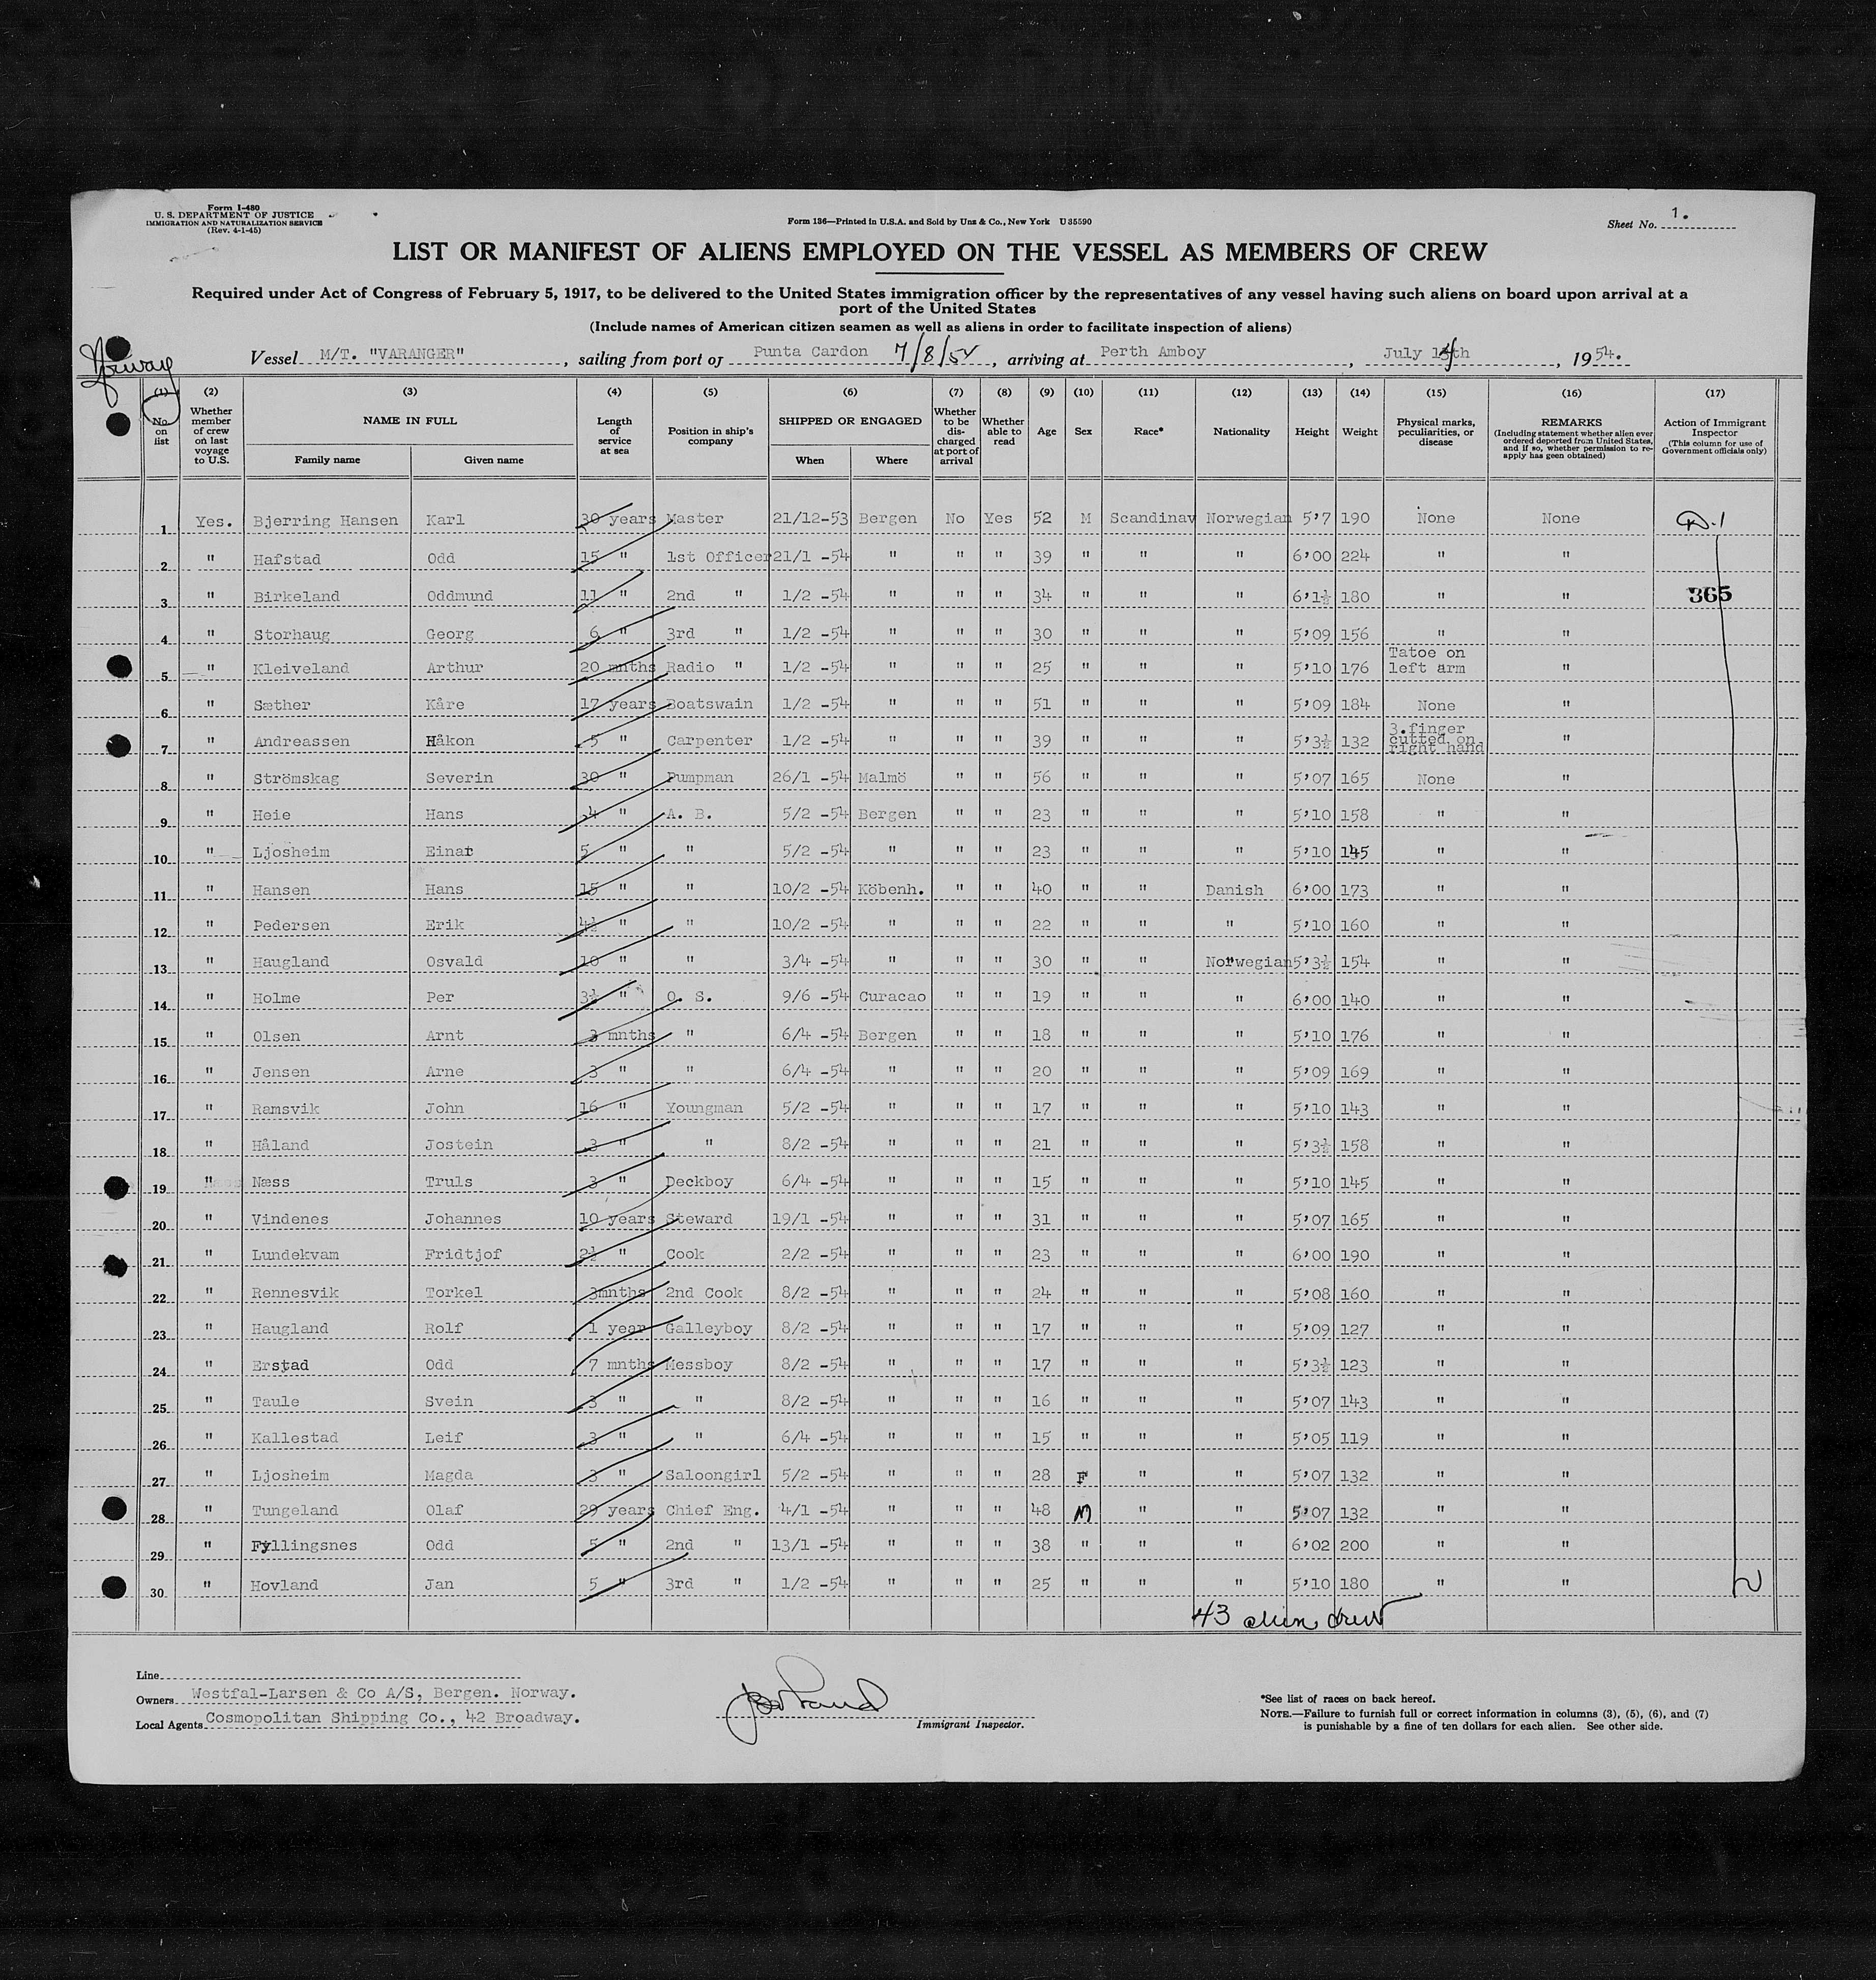 Form I-480
U. S. DEPARTMENT OF JUSTICE
IMMIGRATION AND NATURALIZATION SERVICE
(Rev. 4-1-45)
Form 136—Printed in U.S.A. and Sold by Unz & Co., New York U 35590
Sheet No. 1.
LIST OR MANIFEST OF ALIENS EMPLOYED ON THE VESSEL AS MEMBERS OF CREW
Required under Act of Congress of February 5, 1917, to be delivered to the United States immigration officer by the representatives of any vessel having such aliens on board upon arrival at a
port of the United States
(Include names of American citizen seamen as well as aliens in order to facilitate inspection of aliens)
Norway
Vessel M/T. "VARANGER", sailing from port of Punta Cardon 7/8/54, arriving at Perth Amboy, July th, 1954.
(1) No. on list
(2) Whether member of crew on last voyage to U.S.
(3) NAME IN FULL Family name Given name
(4) Length of service at sea
(5) Position in ship's company
(6) SHIPPED OR ENGAGED When Where
(7) Whether to be discharged at port of arrival
(8) Whether able to read
(9) Age
(10) Sex
(11) Race*
(12) Nationality
(13) Height
(14) Weight
(15) Physical marks, peculiarities, or disease
(16) REMARKS (Including statement whether alien ever ordered deported from United States, and if so, whether permission to re-apply has geen obtained)
(17) Action of Immigrant Inspector (This column for use of Government officials only)
1 Yes. Bjerring Hansen Karl 30 years Master 21/12-53 Bergen No Yes 52 M Scandinav Norwegian 5'7 190 None None
2 " Hafstad Odd 15 " 1st Officer 21/1 -54 " " " 39 " " " 6'00 224 " "
3 " Birkeland Oddmund 11 " 2nd " 1/2 -54 " " " 34 " " " 6'1½ 180 " " 365
4 " Storhaug Georg 6 " 3rd " 1/2 -54 " " " 30 " " " 5'09 156 " "
5 " Kleiveland Arthur 20 mnths Radio " 1/2 -54 " " " 25 " " " 5'10 176 Tatoe on left arm "
6 " Sæther Kåre 17 years Boatswain 1/2 -54 " " " 51 " " " 5'09 184 None "
7 " Andreassen Håkon 5 " Carpenter 1/2 -54 " " " 39 " " " 5'3½ 132 3.finger cutted on right hand "
8 " Strömskag Severin 30 " Pumpman 26/1 -54 Malmö " " 56 " " " 5'07 165 None "
9 " Heie Hans 4 " A. B. 5/2 -54 Bergen " " 23 " " " 5'10 158 " "
10 " Ljosheim Einar 5 " " 5/2 -54 " " " 23 " " " 5'10 145 " "
11 " Hansen Hans 15 " " 10/2 -54 Köbenh. " " 40 " " Danish 6'00 173 " "
12 " Pedersen Erik 4½ " " 10/2 -54 " " " 22 " " " 5'10 160 " "
13 " Haugland Osvald 10 " " 3/4 -54 " " " 30 " " Norwegian 5'3½ 154 " "
14 " Holme Per 3½ " O. S. 9/6 -54 Curacao " " 19 " " " 6'00 140 " "
15 " Olsen Arnt 3 mnths " 6/4 -54 Bergen " " 18 " " " 5'10 176 " "
16 " Jensen Arne 3 " " 6/4 -54 " " " 20 " " " 5'09 169 " "
17 " Ramsvik John 16 " Youngman 5/2 -54 " " " 17 " " " 5'10 143 " "
18 " Håland Jostein 3 " " 8/2 -54 " " " 21 " " " 5'3½ 158 " "
19 " Næss Truls 3 " Deckboy 6/4 -54 " " " 15 " " " 5'10 145 " "
20 " Vindenes Johannes 10 years Steward 19/1 -54 " " " 31 " " " 5'07 165 " "
21 " Lundekvam Fridtjof 2½ " Cook 2/2 -54 " " " 23 " " " 6'00 190 " "
22 " Rennesvik Torkel 3mnths 2nd Cook 8/2 -54 " " " 24 " " " 5'08 160 " "
23 " Haugland Rolf 1 year Galleyboy 8/2 -54 " " " 17 " " " 5'09 127 " "
24 " Erstad Odd 7 mnths Messboy 8/2 -54 " " " 17 " " " 5'3½ 123 " "
25 " Taule Svein 3 " " 8/2 -54 " " " 16 " " " 5'07 143 " "
26 " Kallestad Leif 3 " " 6/4 -54 " " " 15 " " " 5'05 119 " "
27 " Ljosheim Magda 3 " Saloongirl 5/2 -54 " " " 28 F " " 5'07 132 " "
28 " Tungeland Olaf 29 years Chief Eng. 4/1 -54 " " " 48 M " " 5'07 132 " "
29 " Fyllingsnes Odd 5 " 2nd " 13/1 -54 " " " 38 " " " 6'02 200 " "
30 " Hovland Jan 5 " 3rd " 1/2 -54 " " " 25 " " " 5'10 180 " "
43 alien crew
Line
Owners Westfal-Larsen & Co A/S, Bergen. Norway.
Local Agents Cosmopolitan Shipping Co., 42 Broadway.
Immigrant Inspector.
*See list of races on back hereof.
NOTE.—Failure to furnish full or correct information in columns (3), (5), (6), and (7)
is punishable by a fine of ten dollars for each alien. See other side.